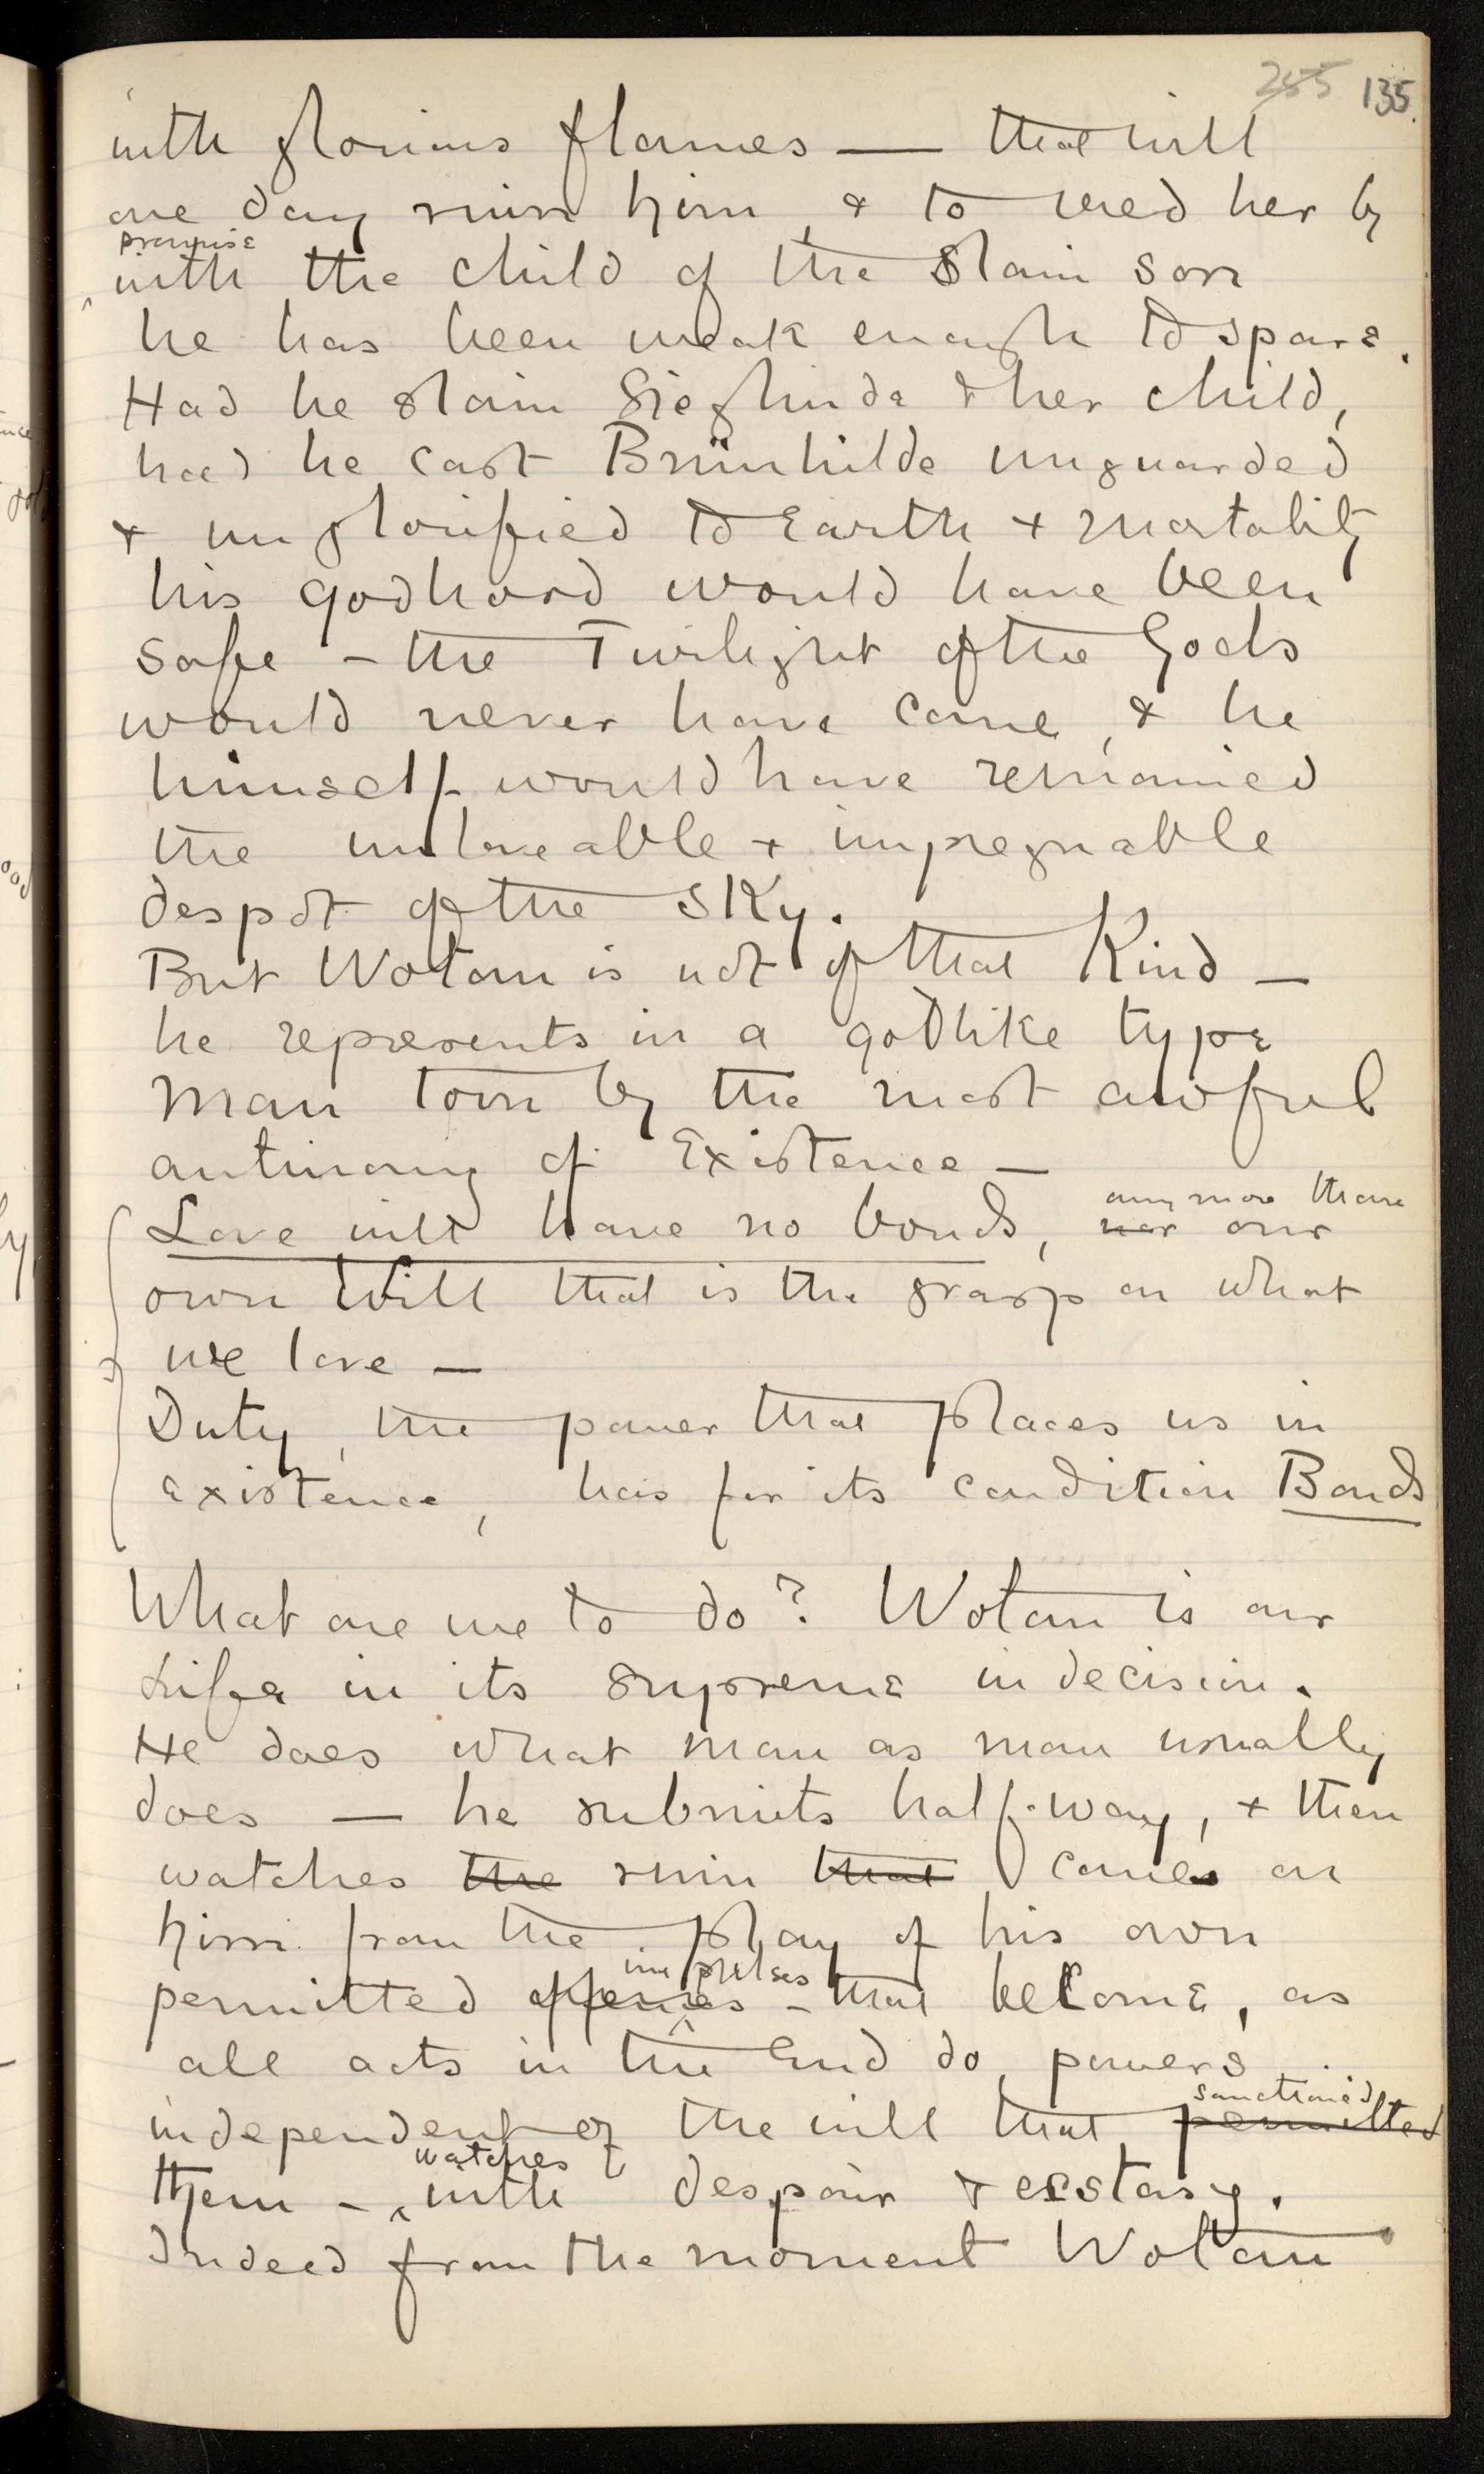 255 135.
with glorious flames — that will
one day ruin him, & to wed her by
promise
with the child of the slain son
he has been weak enough to spare.
Had he slain Sieglinda & her child,
had he cast Brünhilde unguarded
& unglorified to Earth & mortality
his godhood would have been
safe – the Twilight of the Gods
would never have come, & he
himself would have remained
the unloveable & impregnable
despot of the sky.
But Wotan is not of that Kind —
he represents in a godlike type
man torn by the most awful
antinomy of Existence —
any more than
Love will have no bonds, nor our
own Will that is the grasp on what
we love —
Duty, the power that places us in
existence, has for its condition Bonds
What are we to do? Wotan is our
Life in its supreme indecision.
He does what man as man usually
does — he submits half-way, & then
watches the ruin that comes on
him from the play of his own
impulses
permitted offenses – that become, as
all acts in the End do, powers
sanctioned
independent of the will that permitted
watches
them – with despair & ecstasy.
Indeed from the moment Wotan